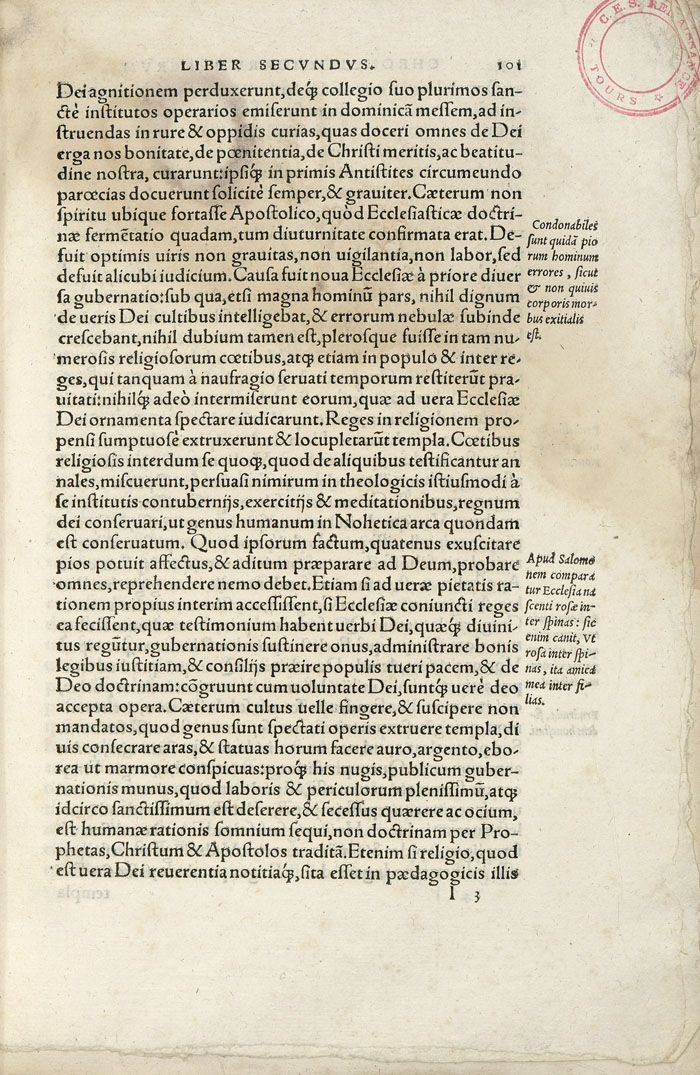 LIBER SECVNDVS. 101
Dei agnitionem perduxerunt, deq́; collegio suo plurimos san-
ctè institutos operarios emiserunt in dominicā messem, ad in-
struendas in rure & oppidis curias, quas doceri omnes de Dei
erga nos bonitate, de pœnitentia, de Christi meritis, ac beatitu-
dine nostra, curarunt: ipsiq́; in primis Antistites circumeundo
parœcias docuerunt solicitè semper, & grauiter. Cæterum non
spiritu ubique fortasse Apostolico, quòd Ecclesiasticæ doctri-
næ fermētatio quadam, tum diuturnitate confirmata erat. De-
fuit optimis uiris non grauitas, non uigilantia, non labor, sed
defuit alicubi iudicium. Causa fuit noua Ecclesiæ à priore diuer
sa gubernatio: sub qua, etsi magna hominū pars, nihil dignum
de ueris Dei cultibus intelligebat, & errorum nebulæ subinde
crescebant, nihil dubium tamen est, plerosque fuisse in tam nu-
merosis religiosorum cœtibus, atq́; etiam in populo & inter re-
ges, qui tanquam à naufragio seruati temporum restiterūt pra-
uitati: nihilq́; adeò intermiserunt eorum, quæ ad uera Ecclesiæ
Dei ornamenta spectare iudicarunt. Reges in religionem pro-
pensi sumptuosè extruxerunt & locupletarūt templa. Cœtibus
religiosis interdum se quoq́;, quod de aliquibus testificantur an
nales, miscuerunt, persuasi nimirum in theologicis istiusmodi à
se institutis contubernijs, exercitijs & meditationibus, regnum
dei conseruari, ut genus humanum in Nohetica arca quondam
est conseruatum. Quod ipsorum factum, quatenus exuscitare
pios potuit affectus, & aditum præparare ad Deum, probare
omnes, reprehendere nemo debet. Etiam si ad ueræ pietatis ra-
tionem propius interim accessissent, si Ecclesiæ coniuncti reges
ea fecissent, quæ testimonium habent uerbi Dei, quæq́; diuini-
tus regūtur, gubernationis sustinere onus, administrare bonis
legibus iustitiam, & consilijs præire populis tueri pacem, & de
Deo doctrinam: cōgruunt cum uoluntate Dei, suntq́; uerè deo
accepta opera. Cæterum cultus uelle fingere, & suscipere non
mandatos, quod genus sunt spectati operis extruere templa, di
uis consecrare aras, & statuas horum facere auro, argento, ebo-
rea ut marmore conspicuas: proq́; his nugis, publicum guber-
nationis munus, quod laboris & periculorum plenissimū, atq́;
idcirco sanctissimum est deserere, & secessus quærere ac ocium,
est humanæ rationis somnium sequi, non doctrinam per Pro-
phetas, Christum & Apostolos traditā. Etenim si religio, quod
est uera Dei reuerentia notitiaq́;, sita esset in pædagogicis illis
l 3
Condonabiles
sunt quidā pio
rum hominum
errores, sicut
& non quiuis
corporis mor-
bus exitialis
est.
Apud Salomo
nem compara
tur Ecclesia na
scenti rosæ in-
ter spinas: sic
enim canit, Vt
rosa inter spi-
nas, ita amica
mea inter fi-
lias.
C.E.S. RENAISSANCE
TOURS